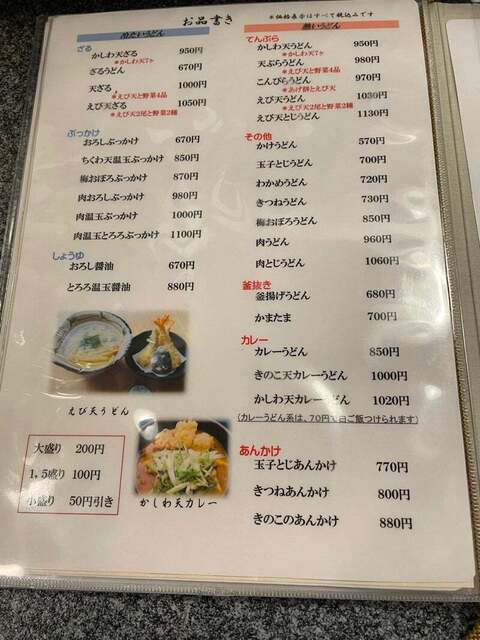 お品書き
※価格表示はすべて税込みです
冷たいうどん
ざる
かしわ天ざる 950円
※かしわ天7ヶ
ざるうどん 670円
天ざる 1000円
※えび天と野菜4品
えび天ざる 1050円
※えび天2尾と野菜2種
ぶっかけ
おろしぶっかけ 670円
ちくわ天温玉ぶっかけ 850円
梅おぼろぶっかけ 870円
肉おろしぶっかけ 980円
肉温玉ぶっかけ 1000円
肉温玉とろろぶっかけ 1100円
しょうゆ
おろし醤油 670円
とろろ温玉醤油 880円
えび天うどん
大盛り 200円
1,5盛り 100円
小盛り 50円引き
かしわ天カレー
熱いうどん
てんぷら
かしわ天うどん 950円
※かしわ天7ヶ
天ぷらうどん 980円
※えび天と野菜4品
こんぴらうどん 970円
※あげ餅とえび天
えび天うどん 1030円
※えび天2尾と野菜2種
えび天とじうどん 1130円
その他
かけうどん 570円
玉子とじうどん 700円
わかめうどん 720円
きつねうどん 730円
梅おぼろうどん 850円
肉うどん 960円
肉とじうどん 1060円
釜抜き
釜揚げうどん 680円
かまたま 700円
カレー
カレーうどん 850円
きのこ天カレーうどん 1000円
かしわ天カレーうどん 1020円
(カレーうどん系は、70円で白ご飯つけられます)
あんかけ
玉子とじあんかけ 770円
きつねあんかけ 800円
きのこのあんかけ 880円